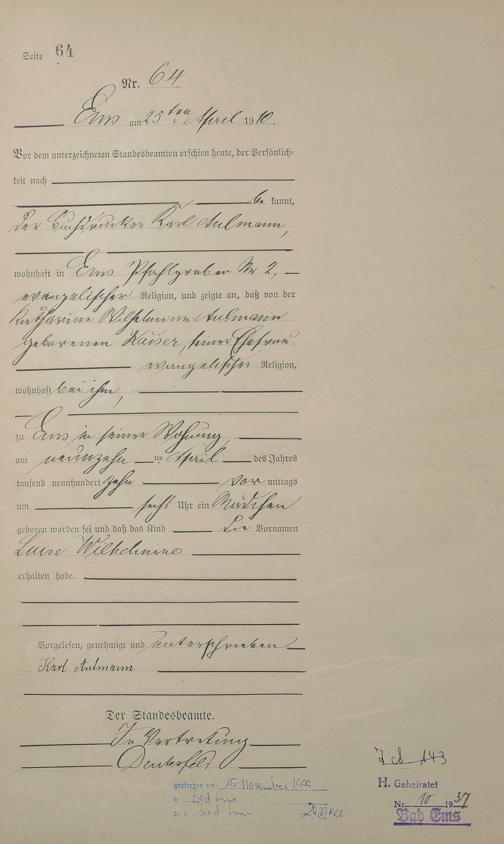 Seite 64
Nr. 64
Ems am 25ten April 1910.
Vor dem unterzeichneten Standesbeamten erschien heute, der Persönlich-
keit nach
be kannt,
der Buchdrucker Karl Aulmann,
wohnhaft in Ems Pfahlgraben Nr 2,
evangelischer Religion, und zeigte an, daß von der
Katharine Wilhelmine Aulmann
geborenen Kaiser, seiner Ehefrau
evangelischer Religion,
wohnhaft bei ihm,
zu Ems in seiner Wohnung,
am neunzehn ten April des Jahres
tausend neunhundert zehn vor mittags
um sechs Uhr ein Mädchen
geboren worden sei und daß das Kind die Vornamen
Luise Wilhelmine
erhalten habe.
Vorgelesen, genehmigt und unterschrieben
Karl Aulmann
Der Standesbeamte.
In Vertretung
gestorben am 15. November
Bad Ems
Bad Ems
143
H. Geheiratet
Nr. 10 1937
Bad Ems